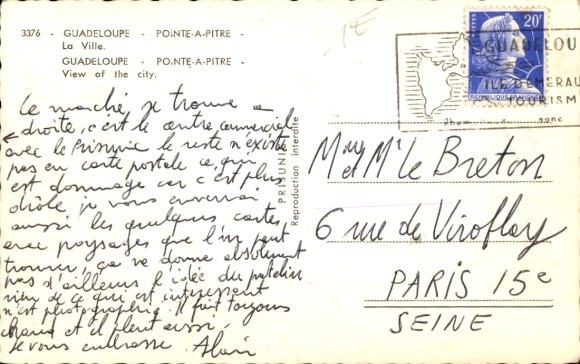 3376 - GUADELOUPE - POINTE-A-PITRE -
La Ville.
GUADELOUPE - POINTE-A-PITRE -
View of the city.
1€
20F
REPUBLIQUE FRANÇAISE
GUADELOU
ILE D'EMERAU
TOURISM
Rhum
Le marché, se trouve a
droite, c'est le centre commercial
avec le Prisunic le reste n'existe
pas en carte postale ce qui
est dommage car c'est plus
drôle, je vous enverrai
aussi les quelques cartes
avec paysages que l'on peut
trouver, ça ne donne absolument
pas d'ailleurs l'idée du patelin
rien de ce qui est intéressant
n'est photographié. Il fait toujours
chaud et il pleut aussi,
Je vous embrasse. Alain
PRISUNIC
Reproduction interdite
Mme et Mr le Breton
6 rue de Viroflay
PARIS 15e
SEINE